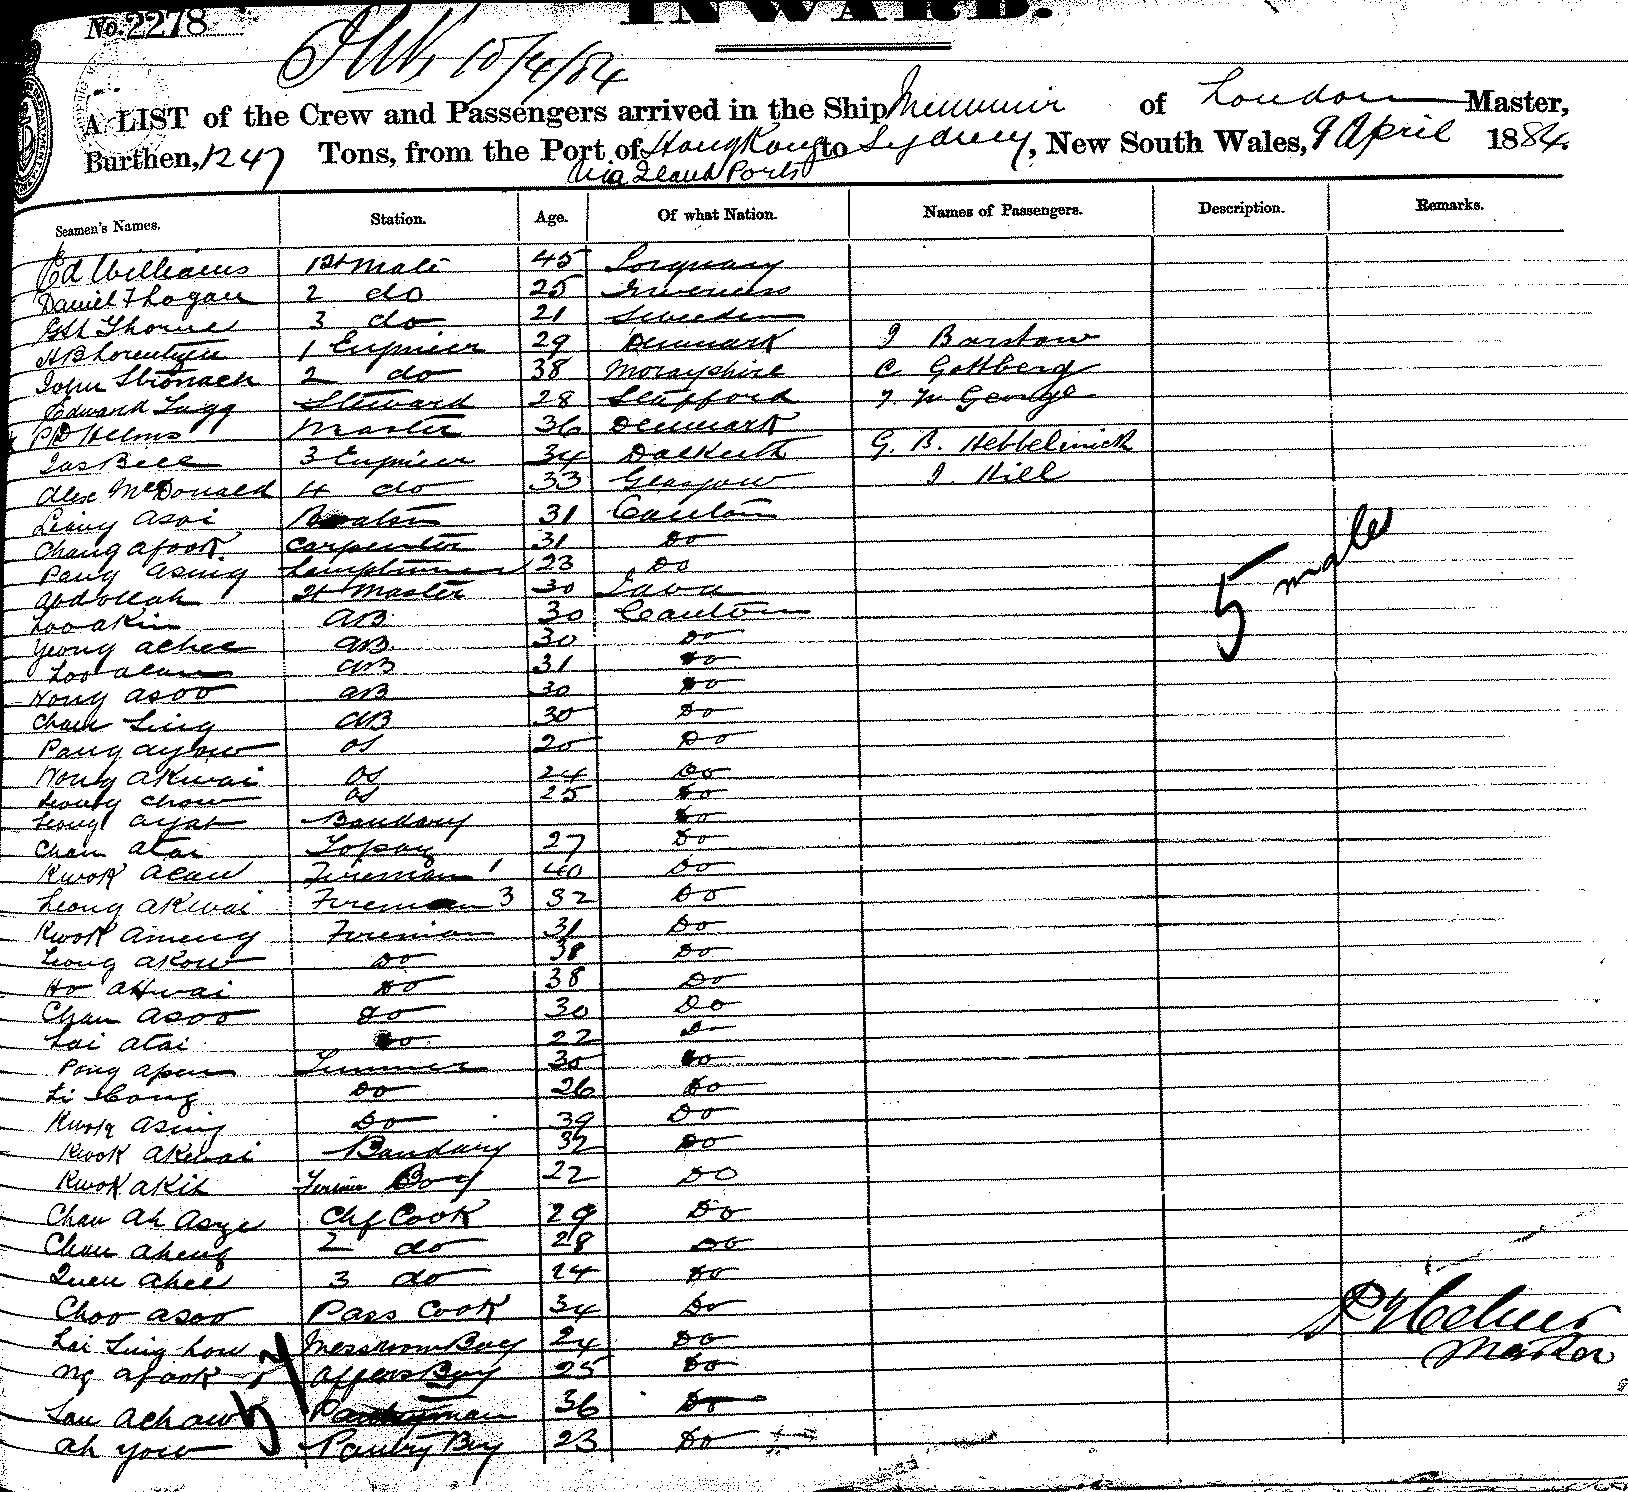 No. 2278
INWARD.
10/4/84
A LIST of the Crew and Passengers arrived in the Ship Memmuir of London Master,
Burthen, 1247 Tons, from the Port of Hong Kong to Sydney, New South Wales, 9 April 1884.
Via Island Ports
Seamen's Names. Station. Age. Of what Nation. Names of Passengers. Description. Remarks.
Ed Williams 1st Mate 45
Daniel F Logan 2 do 25 Inverness
Thorne 3 do 21 Sweeden
HB Lorentzen 1 Engineer 29 Denmark J Barstow
John Stronach 2 do 38 Morayshire C Gottberg
Edward Tugg Steward 28 Stafford George
P D Helms Master 36 Denmark
Jas Bell 3 Engineer 34 Dalkeith G. B. Hebbelinick
Alex McDonald 4 do 33 Glasgow J. Hill
Leong Asoi Boatsn 31 Canton
Chang Afook Carpenter 31 Do
Pang Asing Lamptrimmer 23 Do
Abdollah Qt Master 30 Java
Loo Akin AB 30 Canton
Yeong Achee AB 30 Do
Loo Alan AB 31 Do
Wong Asoo AB 30 Do
Chan Sing AB 30 Do
Pang Ayow OS 20 Do
Wong Akwai OS 24 Do
Leong Chow OS 25 Do
Leong Ayat Bandary Do
Chan Atai Topay 27 Do
Kwok Acan Fireman 1 40 Do
Leong Akwai Fireman 3 32 Do
Kwok Ameng Fireman 31 Do
Leong Akow Do 38 Do
Ho Ahwai Do 38 Do
Chan Asoo Do 30 Do
Lai Atai Do 22 Do
Pong Apen Trimmer 30 Do
Li Cong Do 26 Do
Kwok Asing Do 39 Do
Kwok Akwai Bandary 32 Do
Kwok Akit Boy 22 Do
Chan Ah Chf Cook 29 Do
Chan Aheng 2 do 28 Do
Ahee 3 do 24 Do
Choo Asoo Pass Cook 34 Do
Lai Sing Low Messroom Boy 24 Do
Ng Afook Offers Boy 25 Do
Lau Achaw Pantryman 36 Do
Ah Yow Pantry Boy 23 Do
5 males
P D Helms
Master